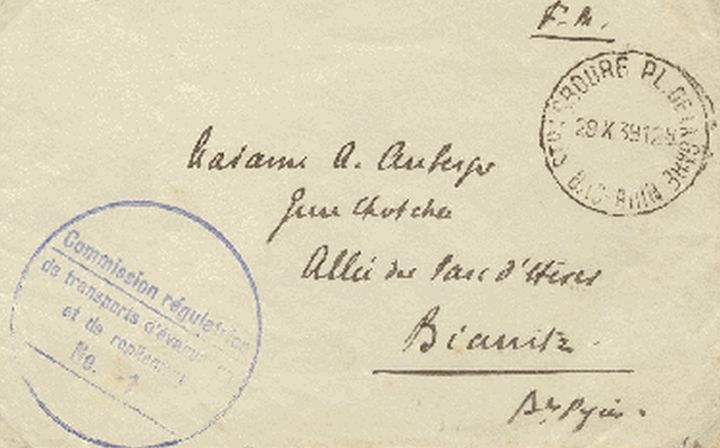 F.M.
STRASBOURG PL. DE LA GARE
29 X 39 12
BAS-RHIN
Madame A. Auberge
Allée du Parc d'Hiver
Biarritz
Bses Pyrées
Commission régulatrice
de transports d'évacuation
et de
No. 1